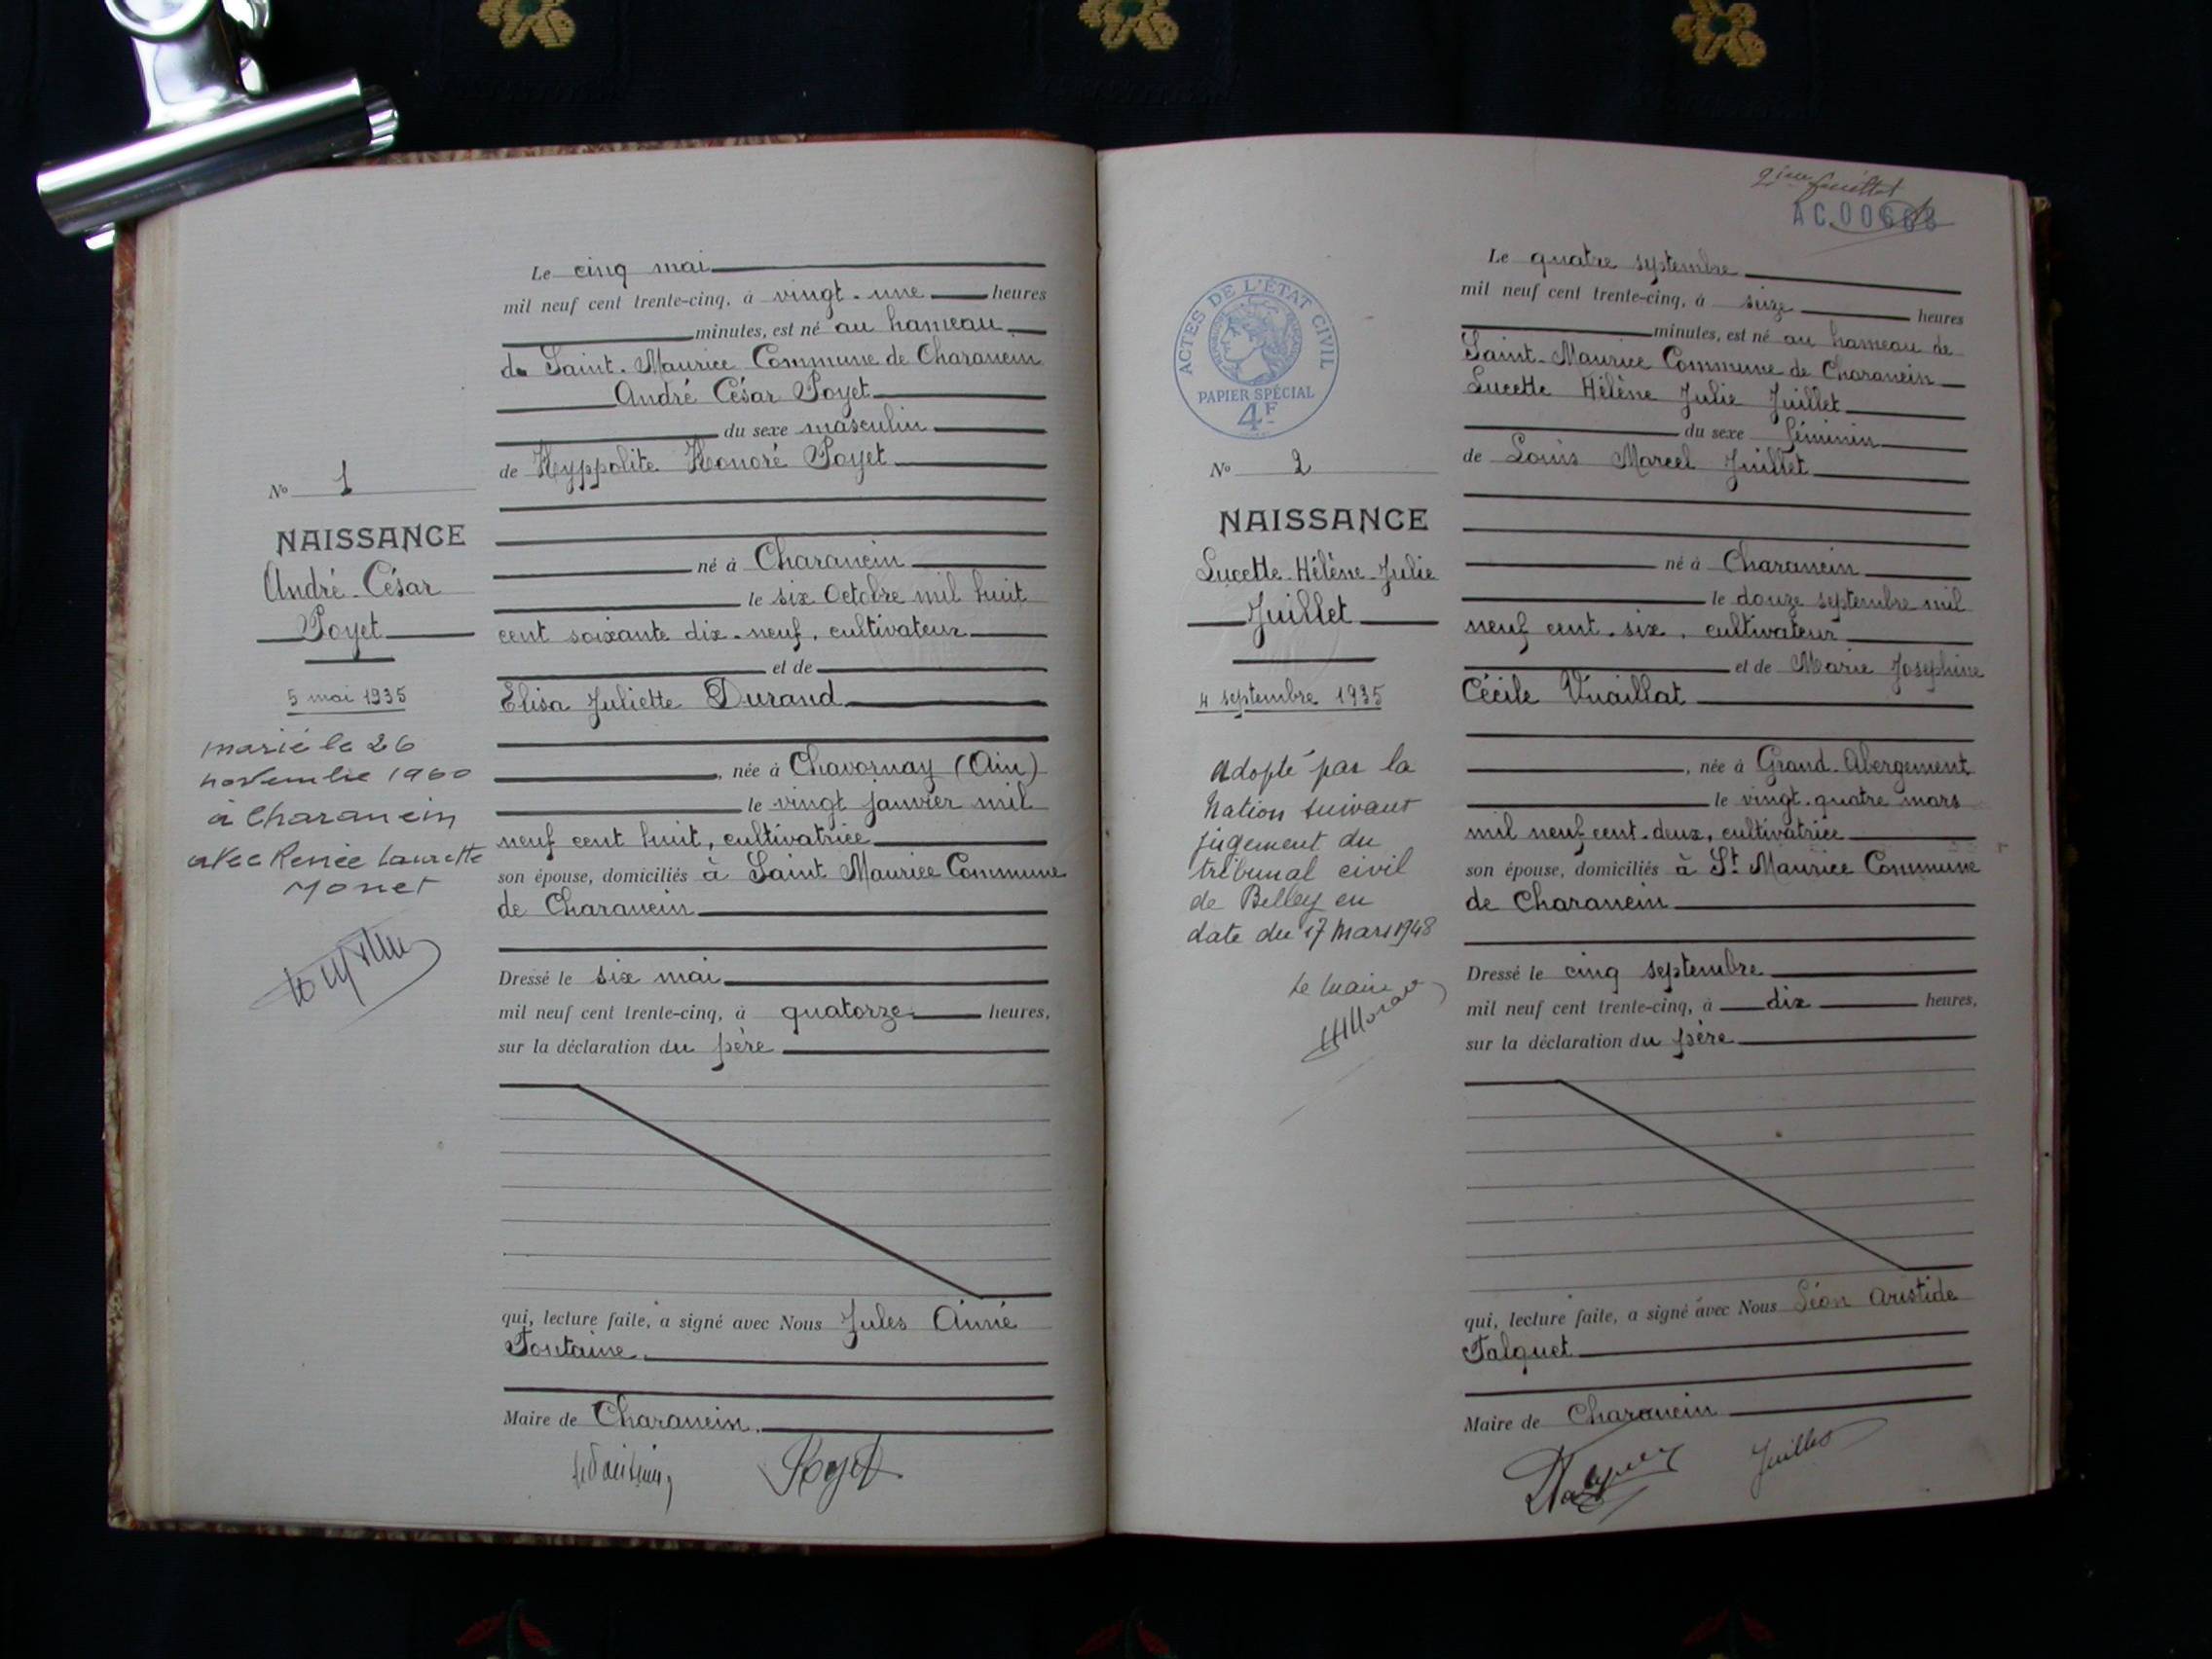 Le cinq mai
mil neuf cent trente-cinq, à vingt-une heures
minutes, est né au hameau
de Saint-Maurice Commune de Charancin
André César Poyet
du sexe masculin
de Hyppolite Honoré Poyet
N° 1
NAISSANCE
André-César
Poyet
5 mai 1935
marié le 26
novembre 1960
à Charancin
avec Renée Laurette
Monet
né à Charancin
le six Octobre mil huit
cent soixante dix-neuf, cultivateur
et de
Elisa Juliette Durand
, née à Chavornay (Ain)
le vingt janvier mil
neuf cent huit, cultivatrice
son épouse, domiciliés à Saint Maurice Commune
de Charancin
Dressé le six mai
mil neuf cent trente-cinq, à quatorze heures,
sur la déclaration du père
qui, lecture faite, a signé avec Nous Jules Aimé
Fontaine.
Maire de Charancin.
Poyet
2ième feuillet
Le quatre septembre
mil neuf cent trente-cinq, à seize heures
minutes, est né au hameau de
Saint-Maurice Commune de Charancin
Lucette Hélène Julie Juillet
du sexe féminin
de Louis Marcel Juillet
ACTES DE L'ÉTAT CIVIL
PAPIER SPÉCIAL
4F
N° 2
NAISSANCE
Lucette-Hélène-Julie
Juillet
4 septembre 1935
Adopté par la
Nation suivant
jugement du
tribunal civil
de Belley en
date du 17 Mars 1948
Le Maire
né à Charancin
le douze septembre mil
neuf cent-six, cultivateur
et de Marie Joséphine
Cécile Vuaillat
, née à Grand-Abergement
le vingt-quatre mars
mil neuf cent-deux, cultivatrice
son épouse, domiciliés à St Maurice Commune
de Charancin
Dressé le cinq septembre
mil neuf cent trente-cinq, à dix heures,
sur la déclaration du père
qui, lecture faite, a signé avec Nous Léon Aristide
Falquet
Maire de Charancin
Juillet